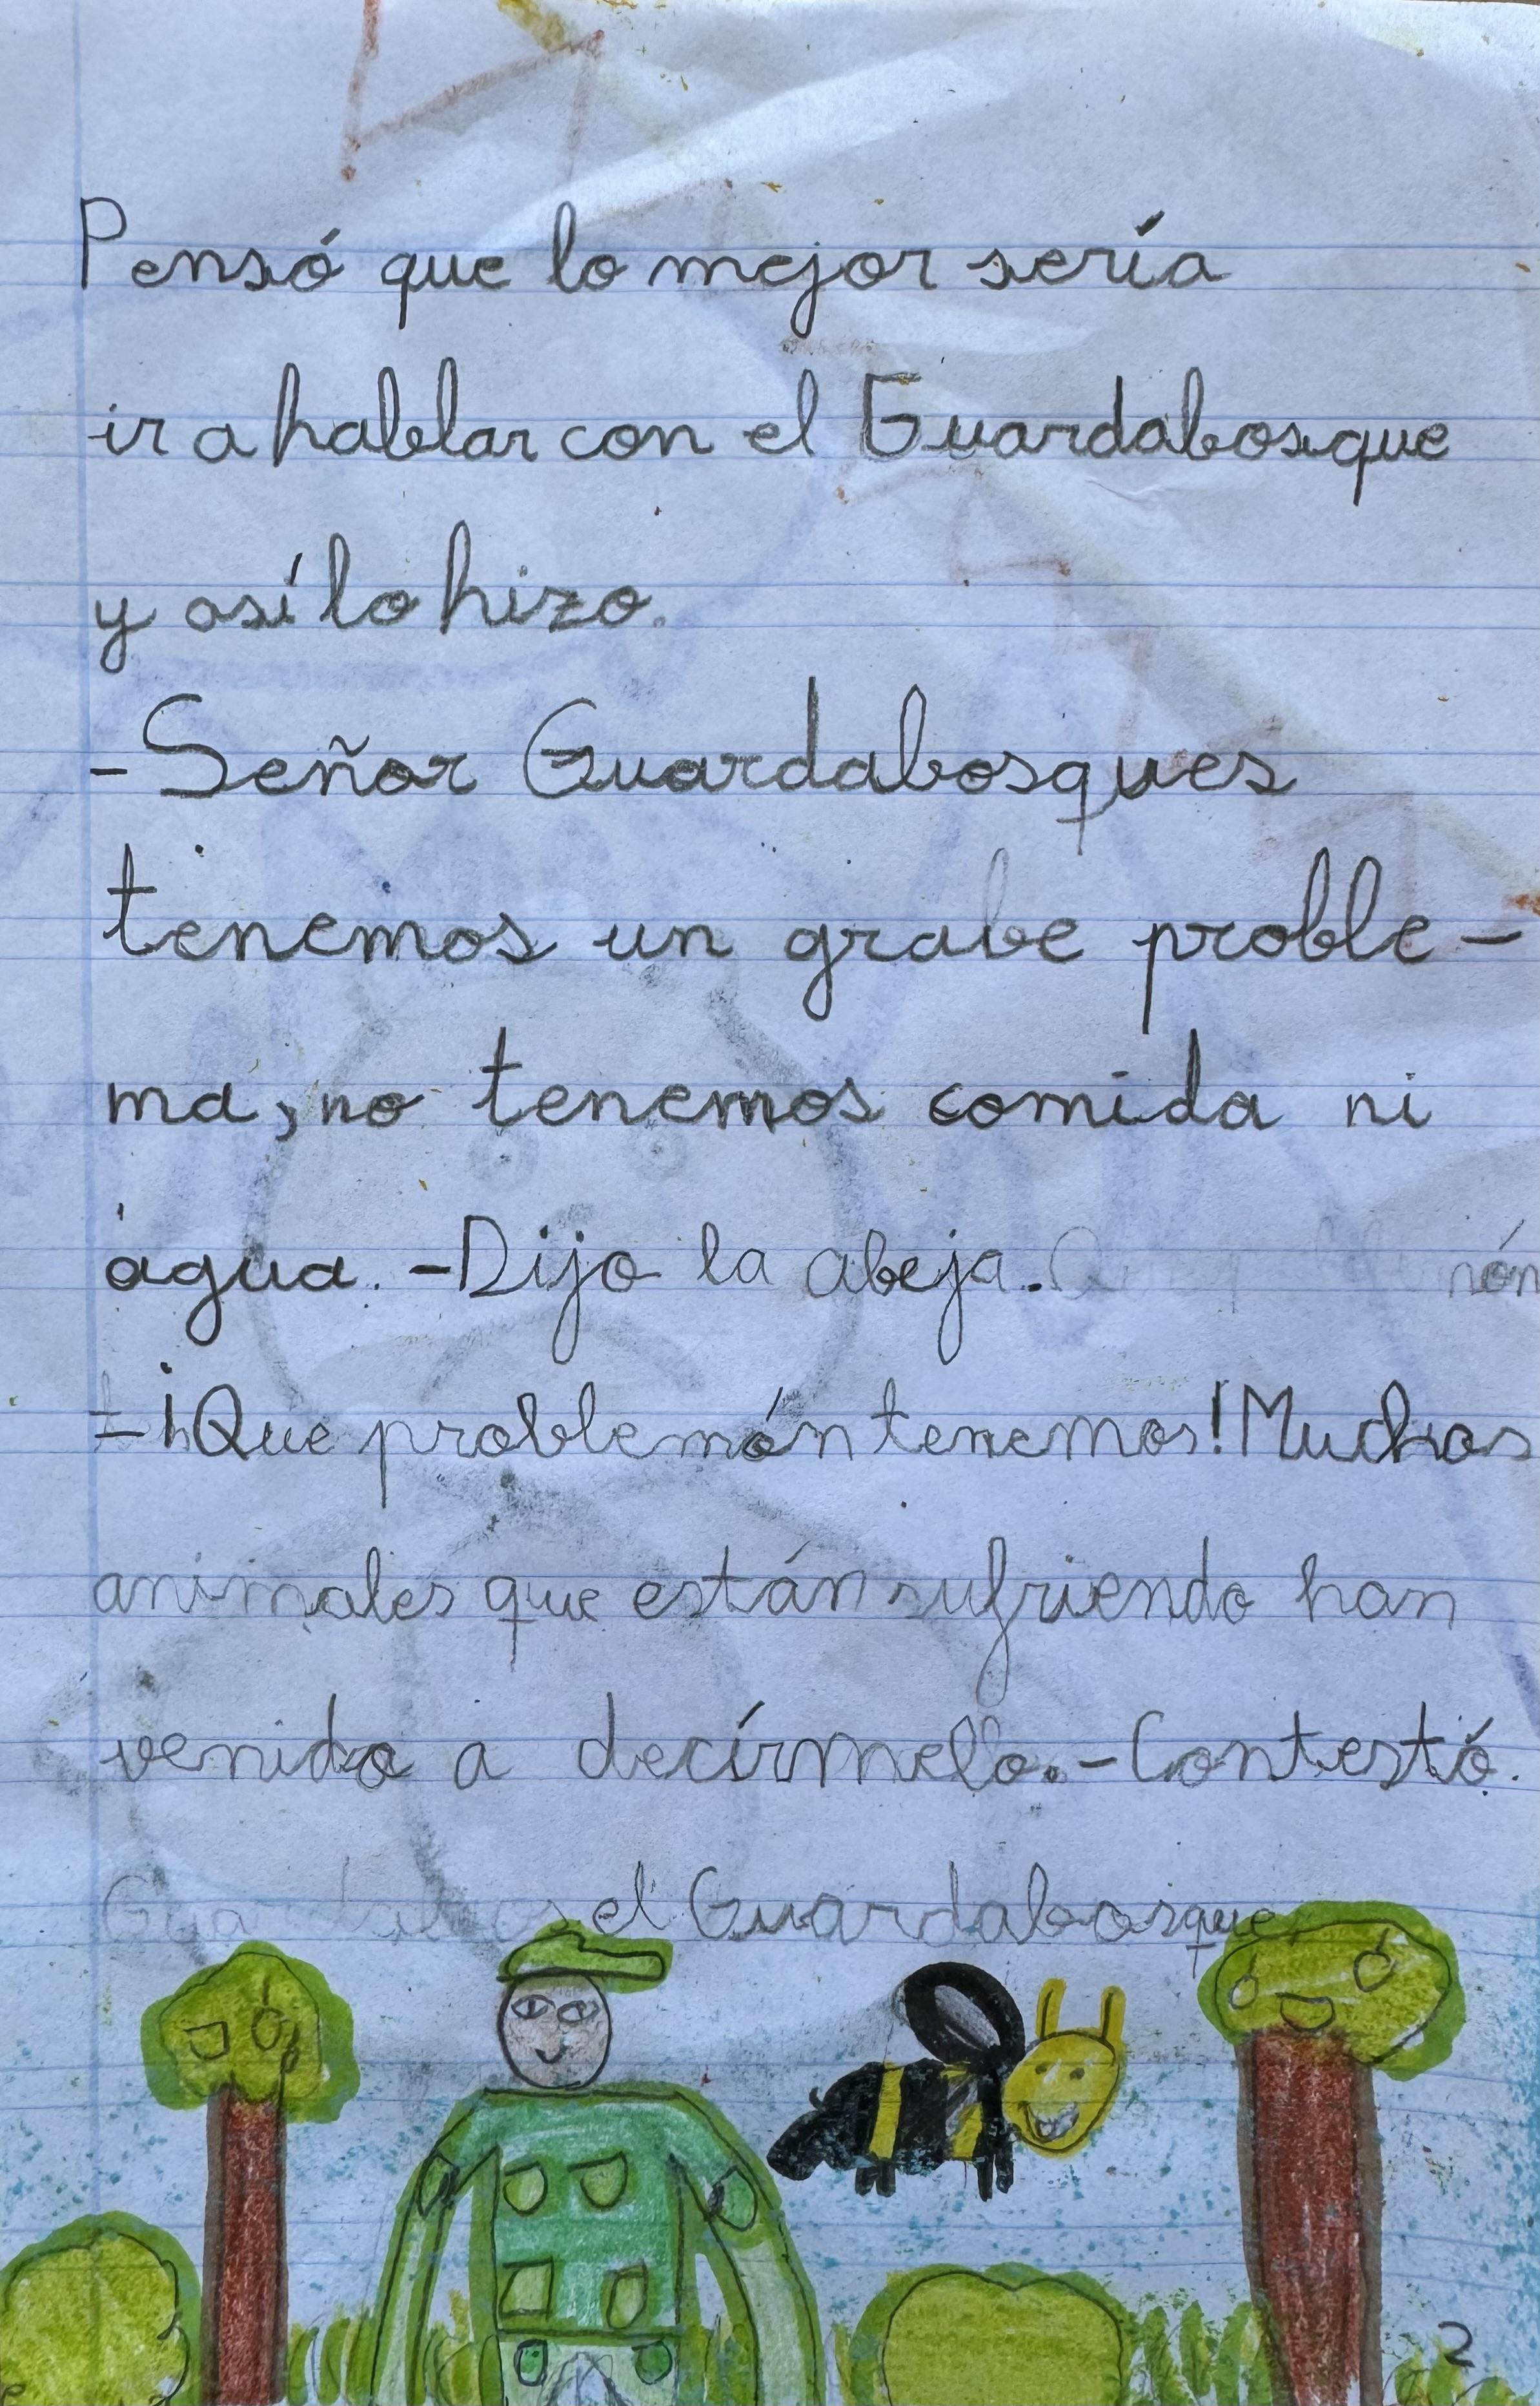 Pensó que lo mejor sería
ir a hablar con el Guardabosque
y así lo hizo.
-Señor Guardabosques
tenemos un grabe proble-
ma, no tenemos comida ni
água. -Dijo la abeja.
-¡Que problemón tenemos! Muchos
animales que están sufriendo han
venido a decírmelo. -Contestó.
el Guardabosque
2